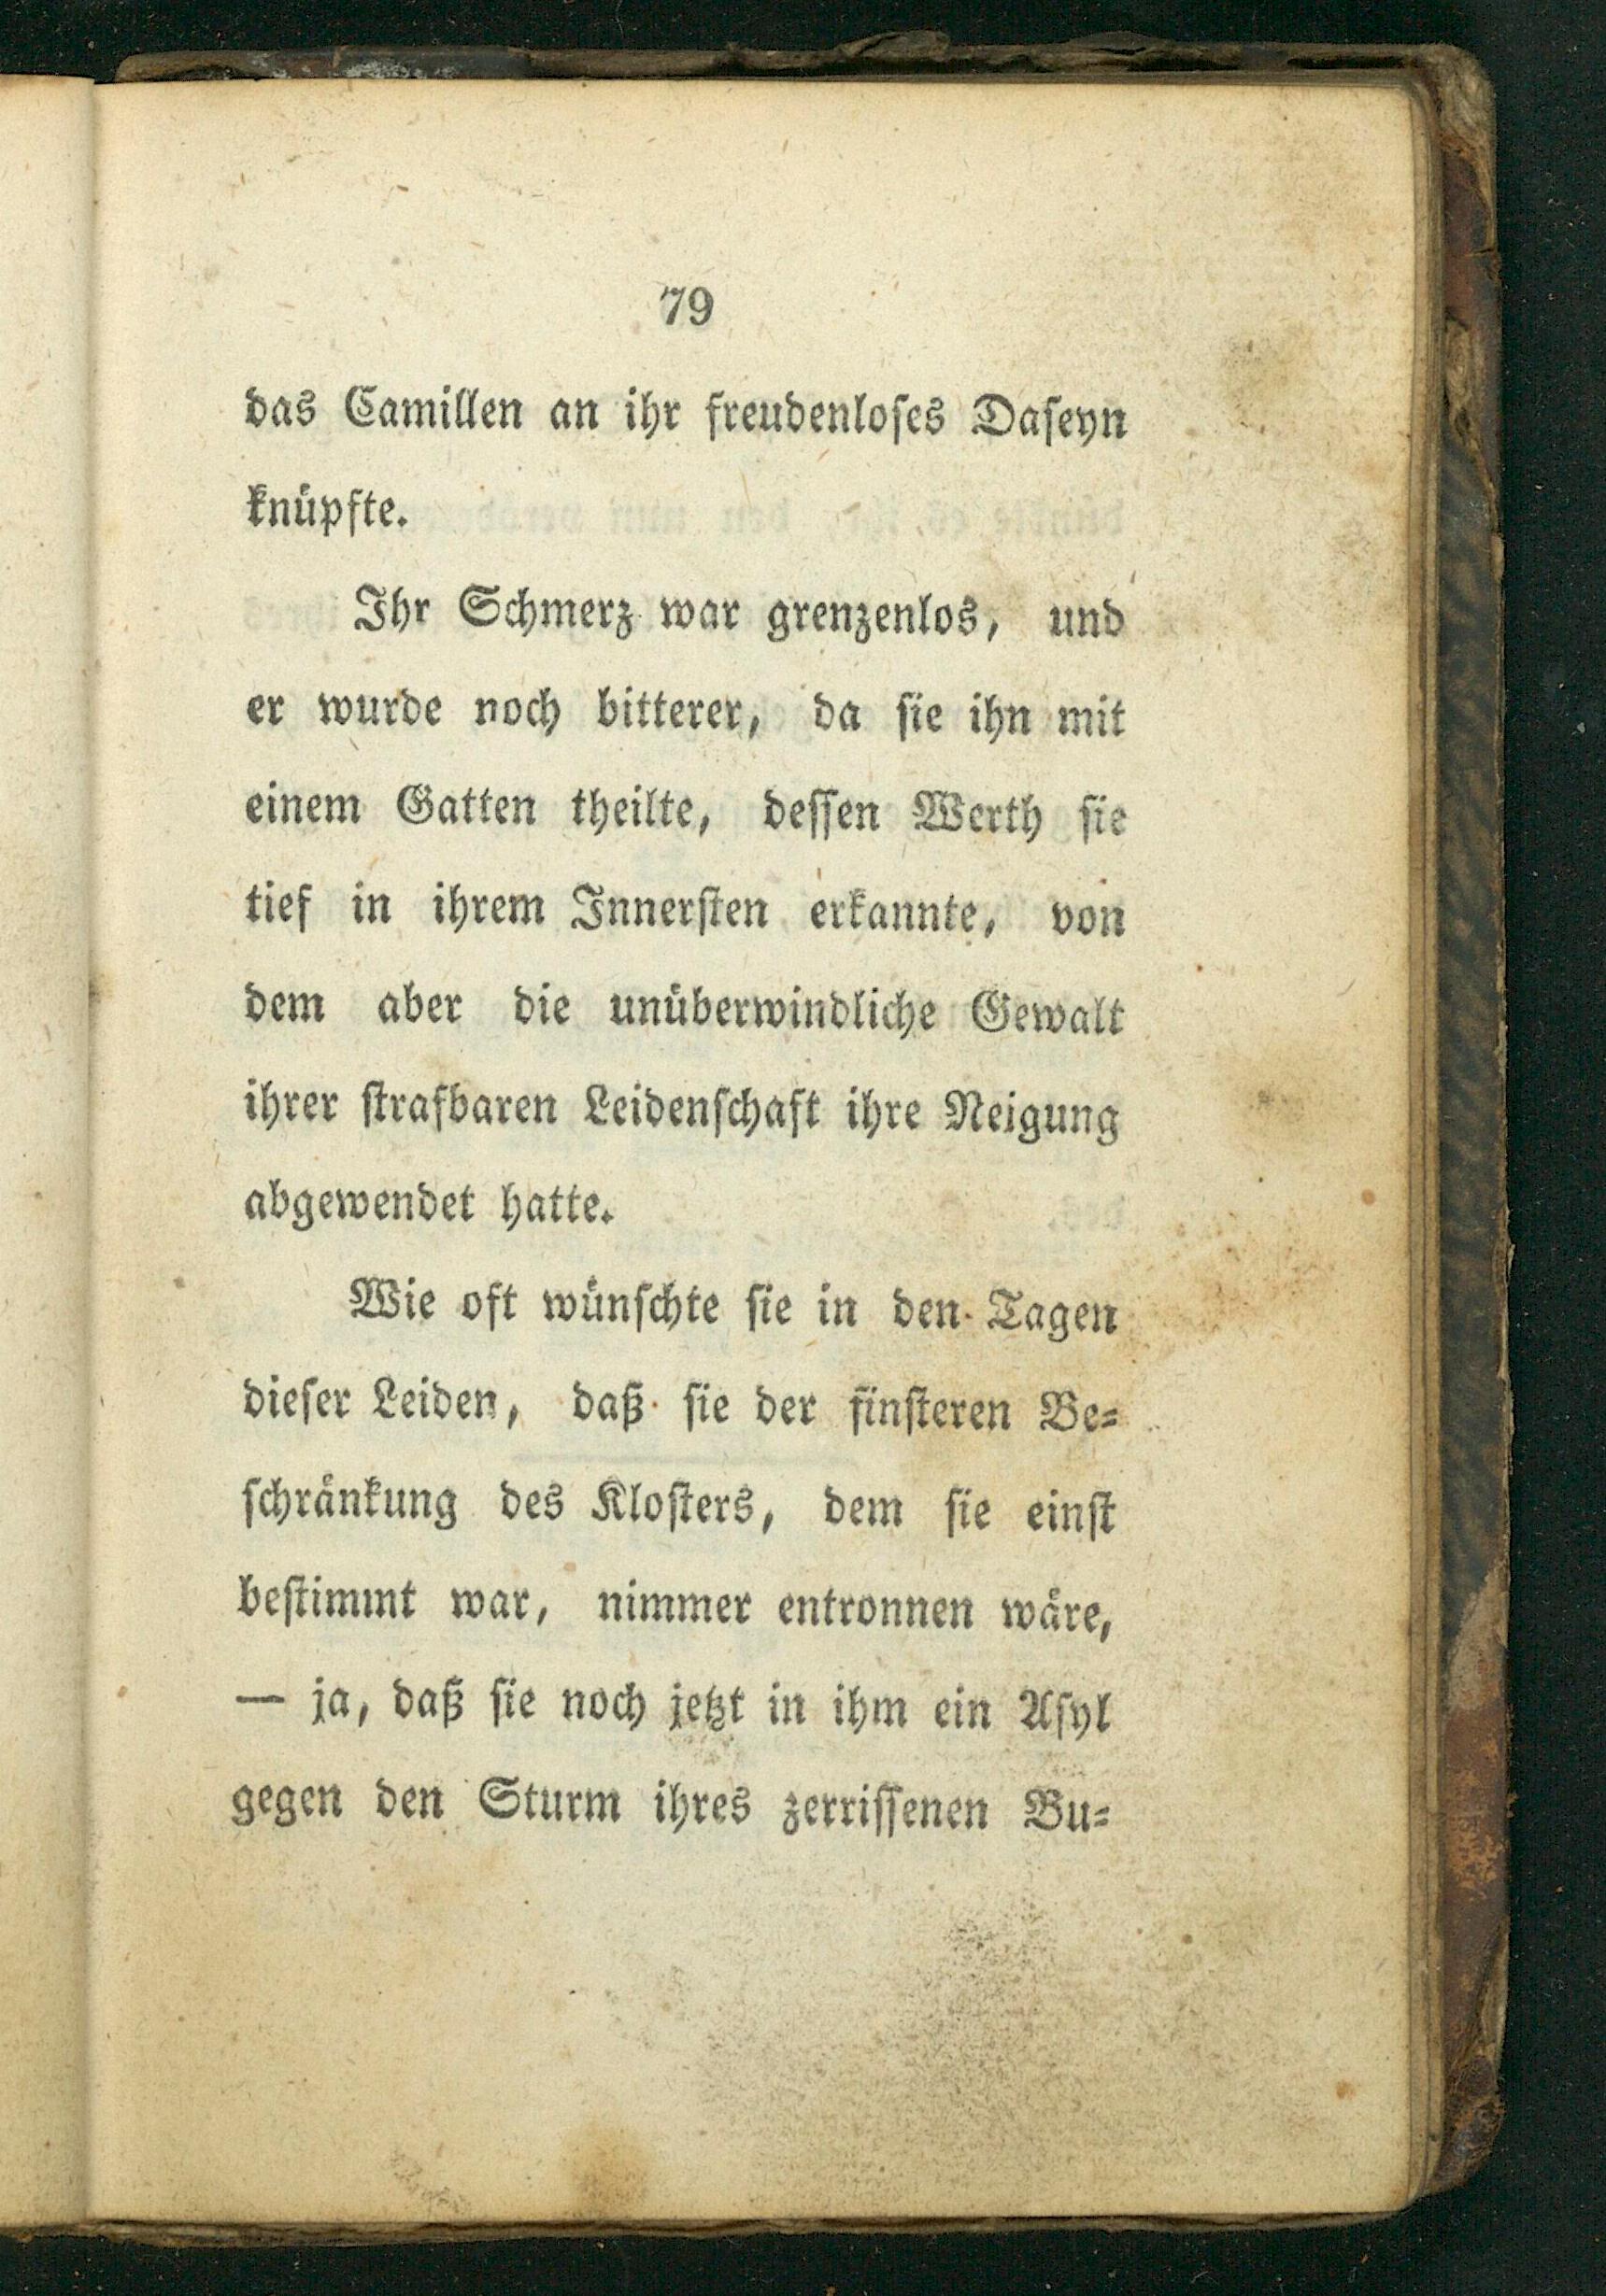 79
das Camillen an ihr freudenloſes Daſeyn
knüpfte.
Ihr Schmerz war grenzenlos, und
er wurde noch bitterer, da ſie ihn mit
einem Gatten theilte, deſſen Werth ſie
tief in ihrem Innerſten erkannte, von
dem aber die unüberwindliche Gewalt
ihrer ſtrafbaren Leidenſchaft ihre Neigung
abgewendet hatte.
Wie oft wünſchte ſie in den Tagen
dieſer Leiden, daß ſie der finſteren Be⸗
ſchränkung des Kloſters, dem ſie einſt
beſtimmt war, nimmer entronnen wäre,
— ja, daß ſie noch jetzt in ihm ein Aſyl
gegen den Sturm ihres zerriſſenen Bu⸗